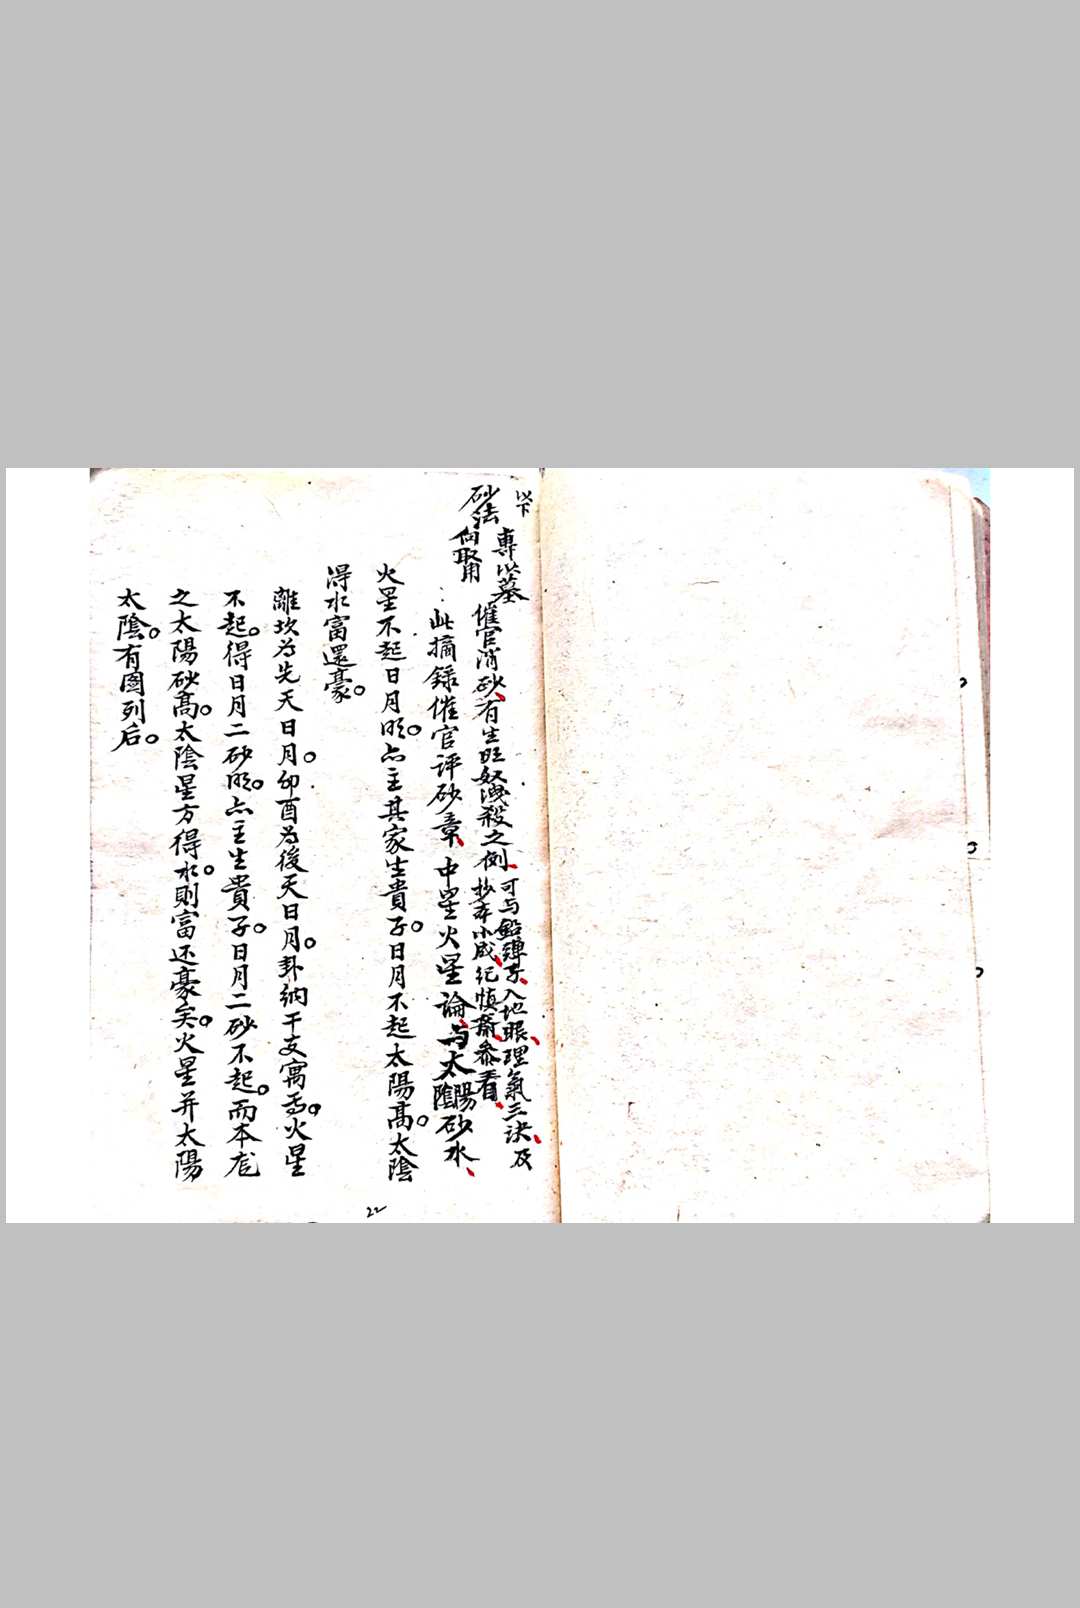 以下
專以墓
砂法
向取用
催官消砂、有生旺奴洩殺之例、
可与鉛弹子、入地眼、理氣三决、及
抄本小成、纪慎齋参看、
此摘録催官评砂章、中星火星論、与太陽太陰砂水、
火星不起日月明。亦主其家生貴子。日月不起太陽高。太陰
得水富還豪。
離坎为先天日月。卯酉为後天日月。卦纳干支寓焉。火星
不起。得日月二砂明。亦主生貴子。日月二砂不起。而本龙
之太陽砂高。太陰星方得水。則富还豪矣。火星并太陽
太陰。有圖列后。
22